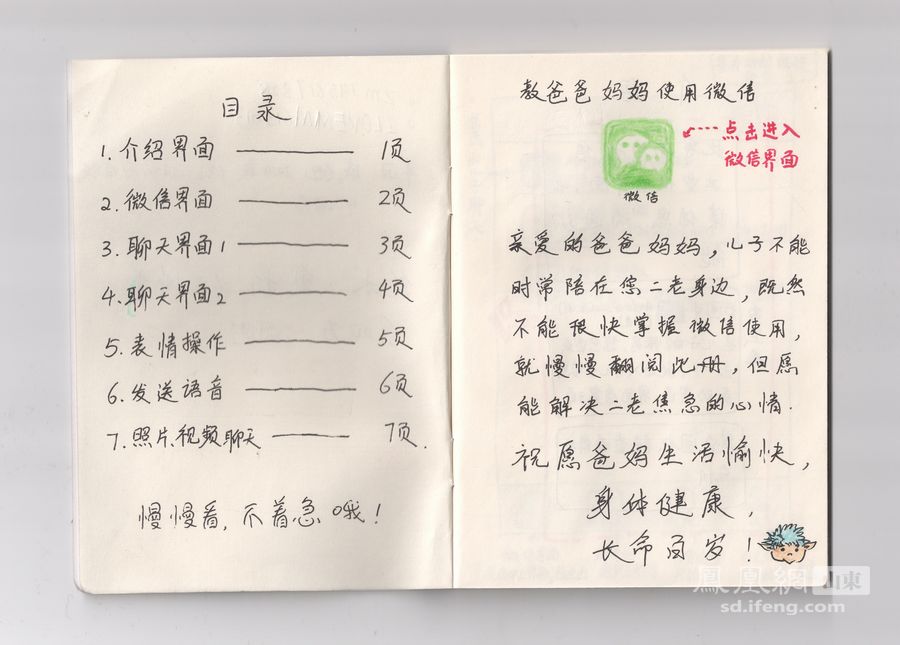 目录
1. 介绍界面 ——— 1页
2. 微信界面 ——— 2页
3. 聊天界面1 ——— 3页
4. 聊天界面2 ——— 4页
5. 表情操作 ——— 5页
6. 发送语音 ——— 6页
7. 照片、视频聊天 ——— 7页.
慢慢看,不着急哦!
教爸爸妈妈使用微信
点击进入
微信界面
微信
亲爱的爸爸妈妈,儿子不能
时常陪在您二老身边,既然
不能很快掌握微信使用,
就慢慢翻阅此册,但愿
能解决二老焦急的心情.
祝愿爸妈生活愉快,
身体健康,
长命百岁!
鳳凰網 山東
sd.ifeng.com